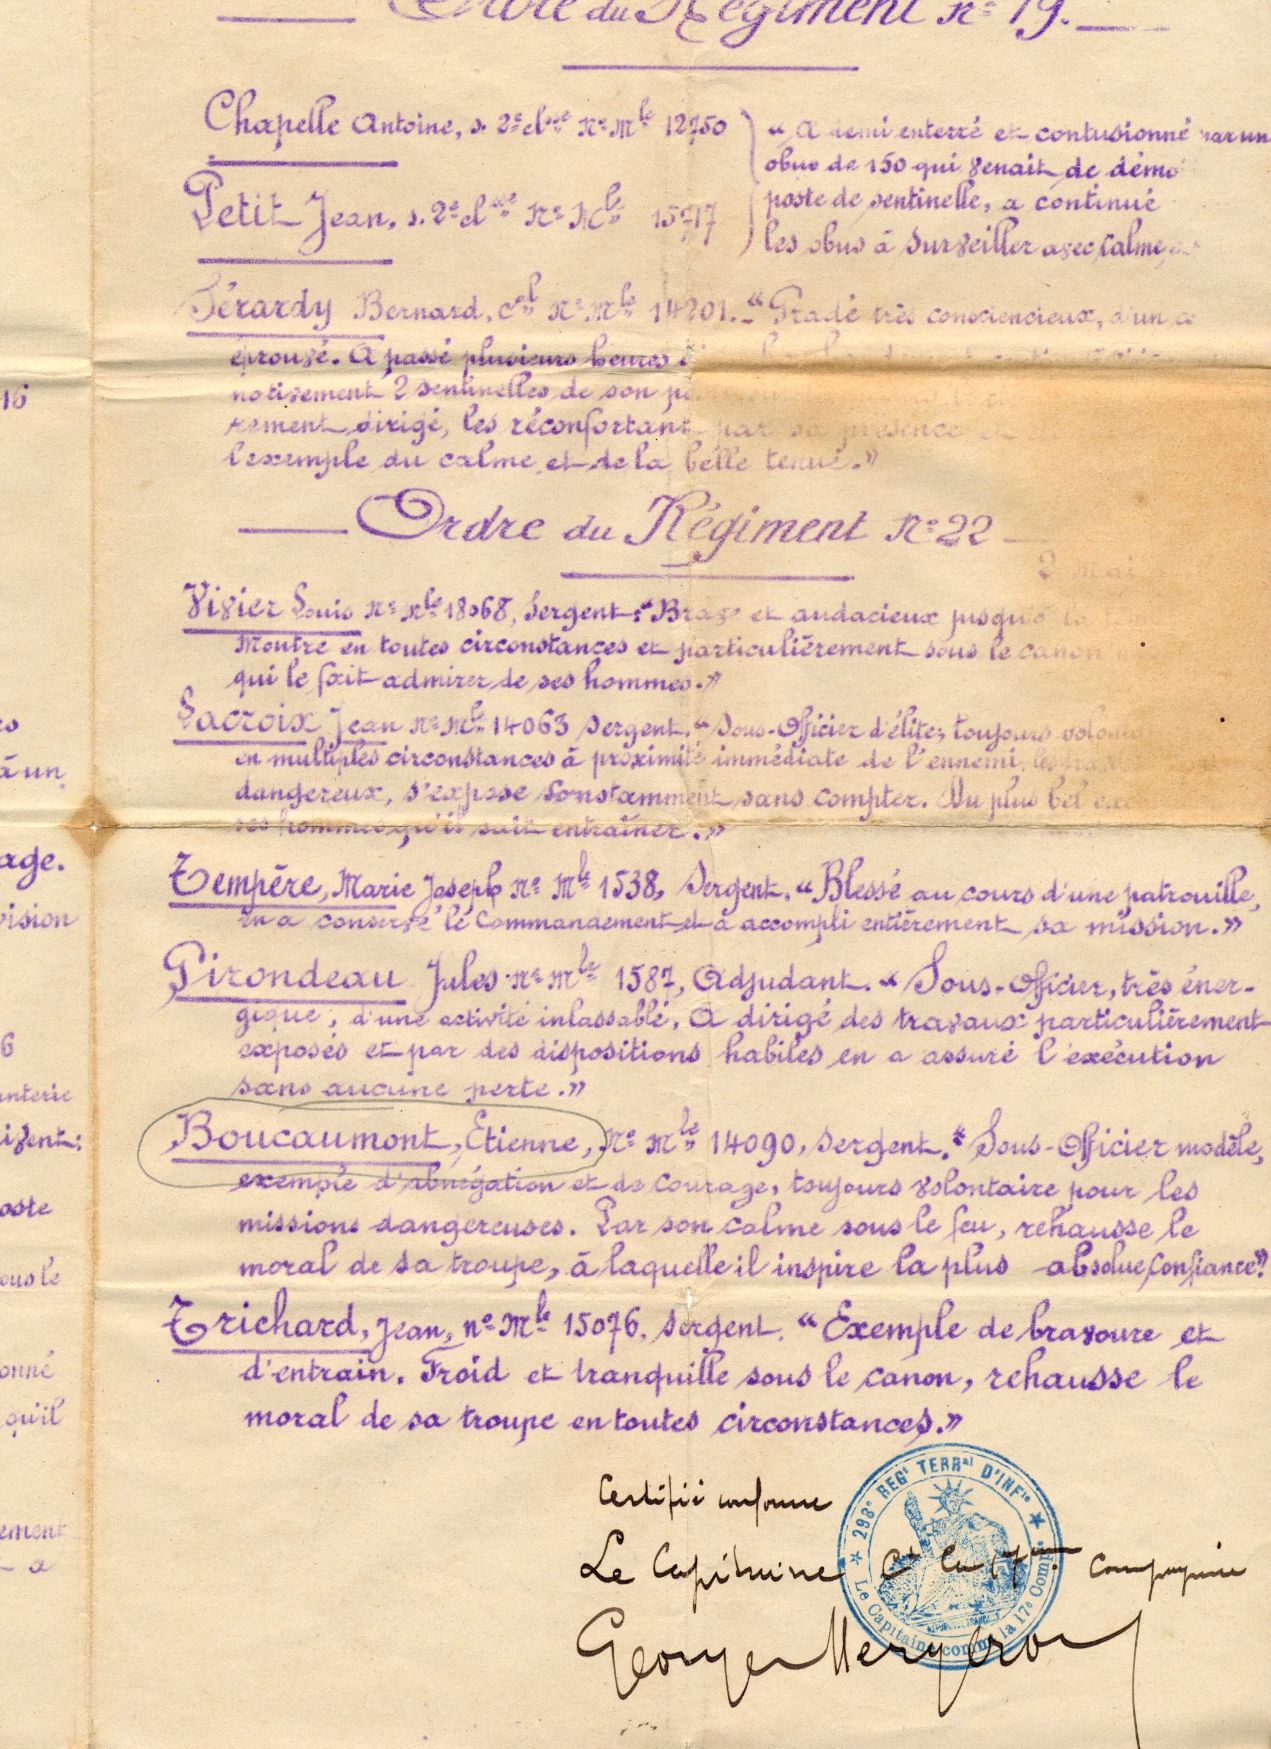 Ordre du Régiment Nº 19.
Chapelle Antoine, s. 2e clsse Nº Mle 12750
Petit Jean, s. 2e clsse Nº Mle 15717
« A demi enterré et contusionné par un
obus de 150 qui venait de démo
poste de sentinelle, a continué
les obus à surveiller avec calme,
Bernard, cal Nº Mle 14201. - "Gradé très consciencieux, d'un
éprouvé. A passé plusieurs heures
2 sentinelles de son
rement dirigé, les réconfortant par sa présence et
l'exemple du calme et de la belle tenue. »
Ordre du Régiment Nº 22
2 Mai
Vivier Louis Nº Mle 18068, Sergent: "Brave et audacieux jusqu'à la
Montre en toutes circonstances et particulièrement sous le canon
qui le fait admirer de ses hommes. »
Lacroix Jean Nº Mle 14063 Sergent. "Sous-Officier d'élite, toujours
en multiples circonstances à proximité immédiate de l'ennemi,
dangereux, s'expose constamment sans compter. Du plus bel
ses hommes qu'il sait entraîner. »
Tempère, Marie Joseph Nº Mle 1538, Sergent. « Blessé au cours d'une patrouille,
en a conservé le Commandement et à accompli entièrement sa mission. »
Pirondeau Jules Nº Mle 1587, Adjudant. « Sous-Officier, très éner-
gique, d'une activité inlassable, A dirigé des travaux particulièrement
exposés et par des dispositions habiles en a assuré l'exécution
sans aucune perte. »
Boucaumont, Etienne, Nº Mle 14090, Sergent. « Sous-Officier modèle,
exemple d'abnégation et de courage, toujours volontaire pour les
missions dangereuses. Par son calme sous le feu, rehausse le
moral de sa troupe, à laquelle il inspire la plus absolue confiance"
Trichard, Jean, nº Mle 15076. Sergent. "Exemple de bravoure et
d'entrain. Froid et tranquille sous le canon, rehausse le
moral de sa troupe en toutes circonstances. »
16
à un
age.
vision
6
oste
ous le
onné
qu'il
ement
Certifié conforme
Le Capitaine Ct la 17ème Compagnie
★ 298e REGt TERRal D'INFie ★
Le Capitaine commt la 17e Compie
REPUBLIQUE FRANÇAISE